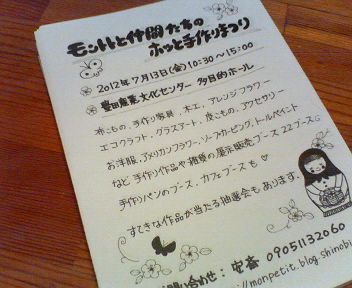 モントトと仲間たちの
ホッと手作りまつり
2012年7月13日(金)10:30~15:00
豊田産業文化センター 多目的ホール
布こもの、手作り家具、木工、アレンジフラワー
エコクラフト、グラスアート、皮こもの、アクセサリー
お洋服、アメリカンフラワー、ソープカービング、トールペイント
など 手作り作品や雑貨の展示販売ブース 22ブース
手作りパンのブース、カフェブースも♡
すてきな作品が当たる抽選会もあります。
問い合わせ:安斎 09051132060
://monpetit.blog.shinobi